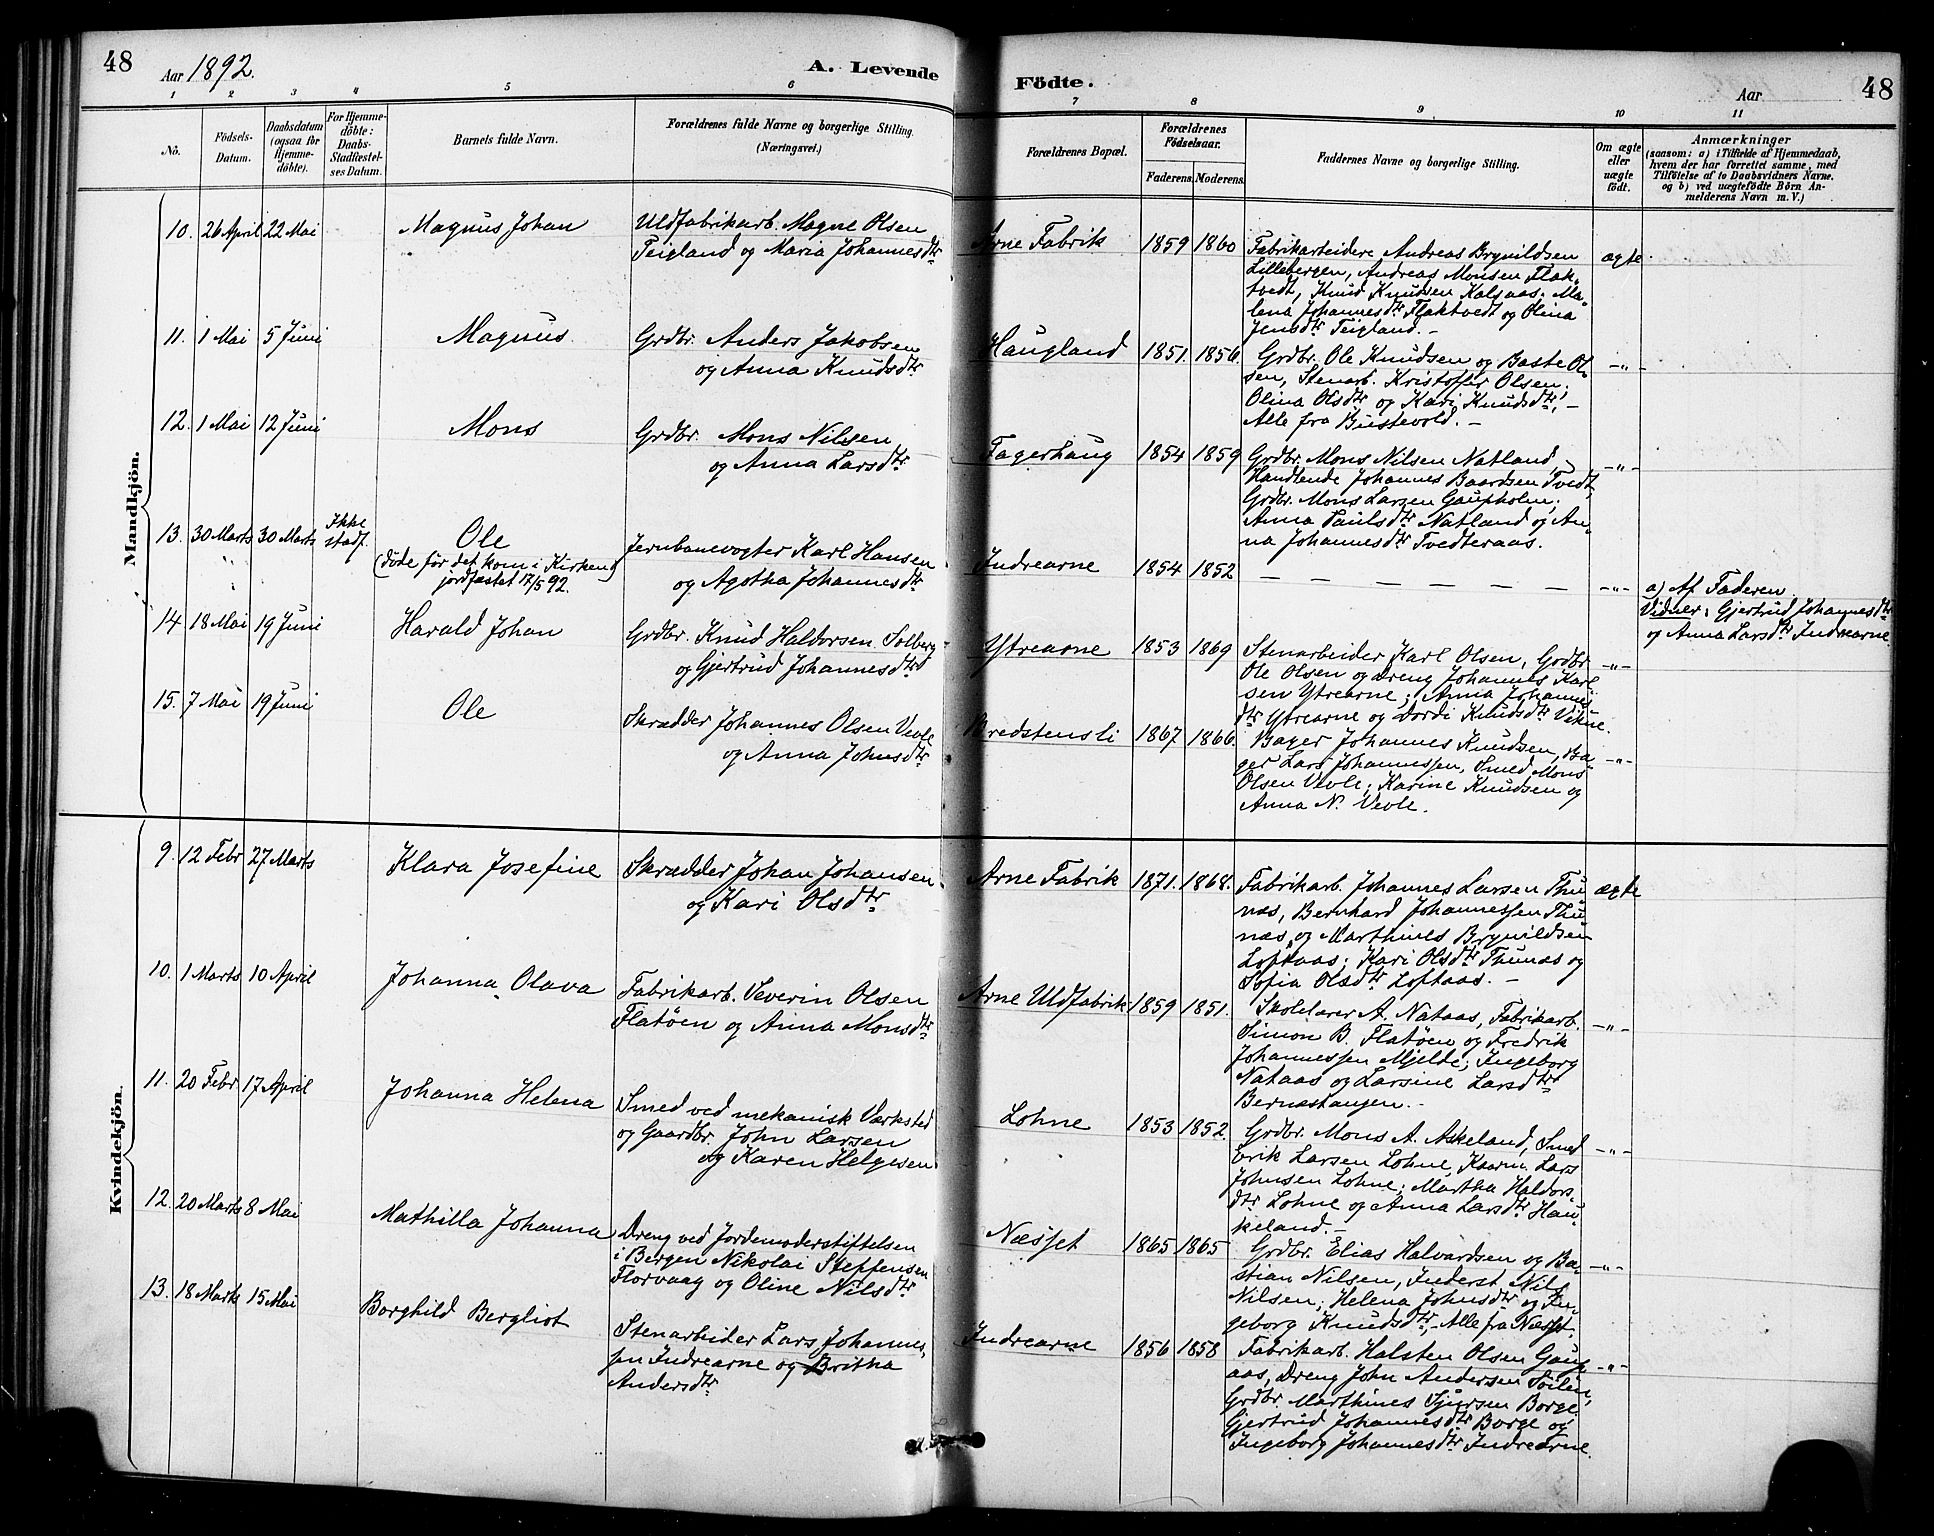 48
Aar 1892.
A. Levende
Födte.
Aar
48
1 2 3 4 5 6 7 8 9 10 11
No.
Födsels-
Datum.
Daabsdatum
(ogsaa for
Hjemme-
döbte).
For Hjemme-
döbte:
Daabs-
Stadfæstel-
ses Datum.
Barnets fulde Navn.
Forældrenes fulde Navne og borgerlige Stilling.
(Næringsvei.)
Forældrenes Bopæl.
Forældrenes
Födselsaar.
Faderens. Moderens.
Faddernes Navne og borgerlige Stilling.
Om ægte
eller
uægte
födt.
Anmærkninger
(saasom: a) i Tilfælde af Hjemmedaab,
hvem der har forrettet samme, med
Tilföielse af to Daabsvidners Navne.
og b) ved uægtefödte Börn An-
melderens Navn m. V.)
Mandkjön.
10. 26 April 22 Mai
Magnus Johan
Uldfabrikarb. Magne Olsen
Teigland og Maria Johannesdtr
Arne Fabrik 1859 1860
Fabrikarbeidere Andreas Brynildsen
Lillebergen, Andreas Monsen Flak-
tvedt, Knud Knudsen Kalsaas; Ma-
lena Johannesdtr Flaktvedt og Olina
Jensdtr Teigland. –
ægte
11. 1 Mai 5 Juni
Magnus
Grdbr. Anders Jakobsen
og Anna Knudsdtr
Haugland 1851. 1856.
Grdbr. Ole Knudsen og Baste Ol-
sen, Stenarb. Kristoffer Olsen;
Olina Olsdtr og Kari Knudsdtr, –
Alle fra Bustevold. –
–"–
12. 1 Mai 12 Juni
Mons
Grdbr. Mons Nilsen
og Anna Larsdtr
Fagerhaug 1854 1859
Grdbr. Mons Nilsen Natland,
Handlende Johannes Baardsen Tvedt,
Grdbr. Mons Larsen Gaupholm;
Anna Paulsdtr Natland og An-
na Johannesdtr Tvedteraas.
–"–
13. 30 Marts 30 Marts
Ikke
stadf.
Ole
(döde för det kom i Kirken,
jordfæstet 17/5 92.
Jernbanevogter Karl Hansen
og Agotha Johannesdtr
Indrearne 1854 1852
– – – – – – –
–"–
a) Af Faderen.
Vidner: Gjertrud Johannesdtr
og Anna Larsdtr Indrearne
14 18 Mai 19 Juni
Harald Johan
Grdbr. Knud Haldorsen Solberg
og Gjertrud Johannesdtr
Ytrearne 1853 1869
Stenarbeider Karl Olsen, Grdbr.
Ole Olsen og Dreng Johannes Karl-
sen Ytrearne; Anna Johannes-
dtr Ytrearne og Dordi Knudsdtr Vikne.
–"–
15. 7 Mai 19 Juni
Ole
Skrædder Johannes Olsen Vevle
og Anna Johnsdtr
Bredstensli 1867 1866.
Bager Johannes Knudsen, Ba-
ger Lars Johannessen, Smed Mons
Olsen Vevle; Karine Knudsen og
Anna N. Vevle.
–"–
Kvindekjön.
9. 12 Febr 27 Marts
Klara Josefine
Skrædder Johan Johansen
og Kari Olsdtr
Arne Fabrik 1871. 1868.
Fabrikarb. Johannes Larsen Thu-
næs, Bernhard Johannessen Thu-
næs og Marthines Brynildsen
Loftaas; Kari Olsdtr Thunæs og
Sofia Olsdtr Loftaas. –
ægte
10. 1 Marts 10 April
Johanna Olava
Fabrikarb. Severin Olsen
Flatöen og Anna Monsdtr
Arne Uldfabrik 1859 1851.
Skolelærer A. Nataas, Fabrikarb.
Simon B. Flatöen og Fredrik
Johannessen Mjelde; Ingeborg
Nataas og Larsine Larsdtr
Bernæstangen. –
–"–
11. 20 Febr 17 April
Johanna Helena
Smed ved mekanisk Værksted
og Gaardbr. John Larsen
og Karen Helgesen
Lohne 1853 1852.
Grdbr. Mons A. Askeland, Smed
Erik Larsen Lohne, Kaarm. Lars
Johnsen Lohne; Martha Haldors-
dtr Lohne og Anna Larsdtr Hau-
keland. –
–"–
12. 20 Marts 8 Mai
Mathilla Johanna
Dreng ved Jordemoderstiftelsen
i Bergen Nikolai Steffensen
Florvaag og Oline Nilsdtr
Næsset 1865 1865
Grdbr. Elias Halvardsen og Ba-
stian Nilsen, Inderst Nils
Nilsen; Helena Johnsdtr og In-
geborg Knudsdtr, – Alle fra Næsset.
–"–
13. 18 Marts 15 Mai
Borghild Bergliot
Stenarbeider Lars Johannes-
sen Indrearne og Britha
Andersdtr
Indrearne 1856 1858
Fabrikarb. Halsten Olsen Gaup-
aas, Dreng John Andersen Soilen,
Grdbr. Marthines Sjursen Borge;
Gjertrud Johannesdtr Borge og
Ingeborg Johannesdtr Indrearne
–"–